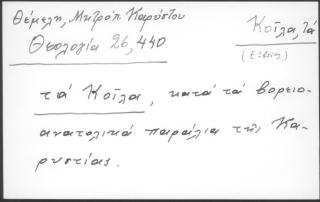 Θέμελη, Μητρόπ. Καρύστου
Θεολογία 26, 440
Κοίλα, τά
(Εὔβοια)
τά Κοῖλα, κατά τά βορειο-
ανατολικά παράλια τῆς Κα-
ρυστίας.